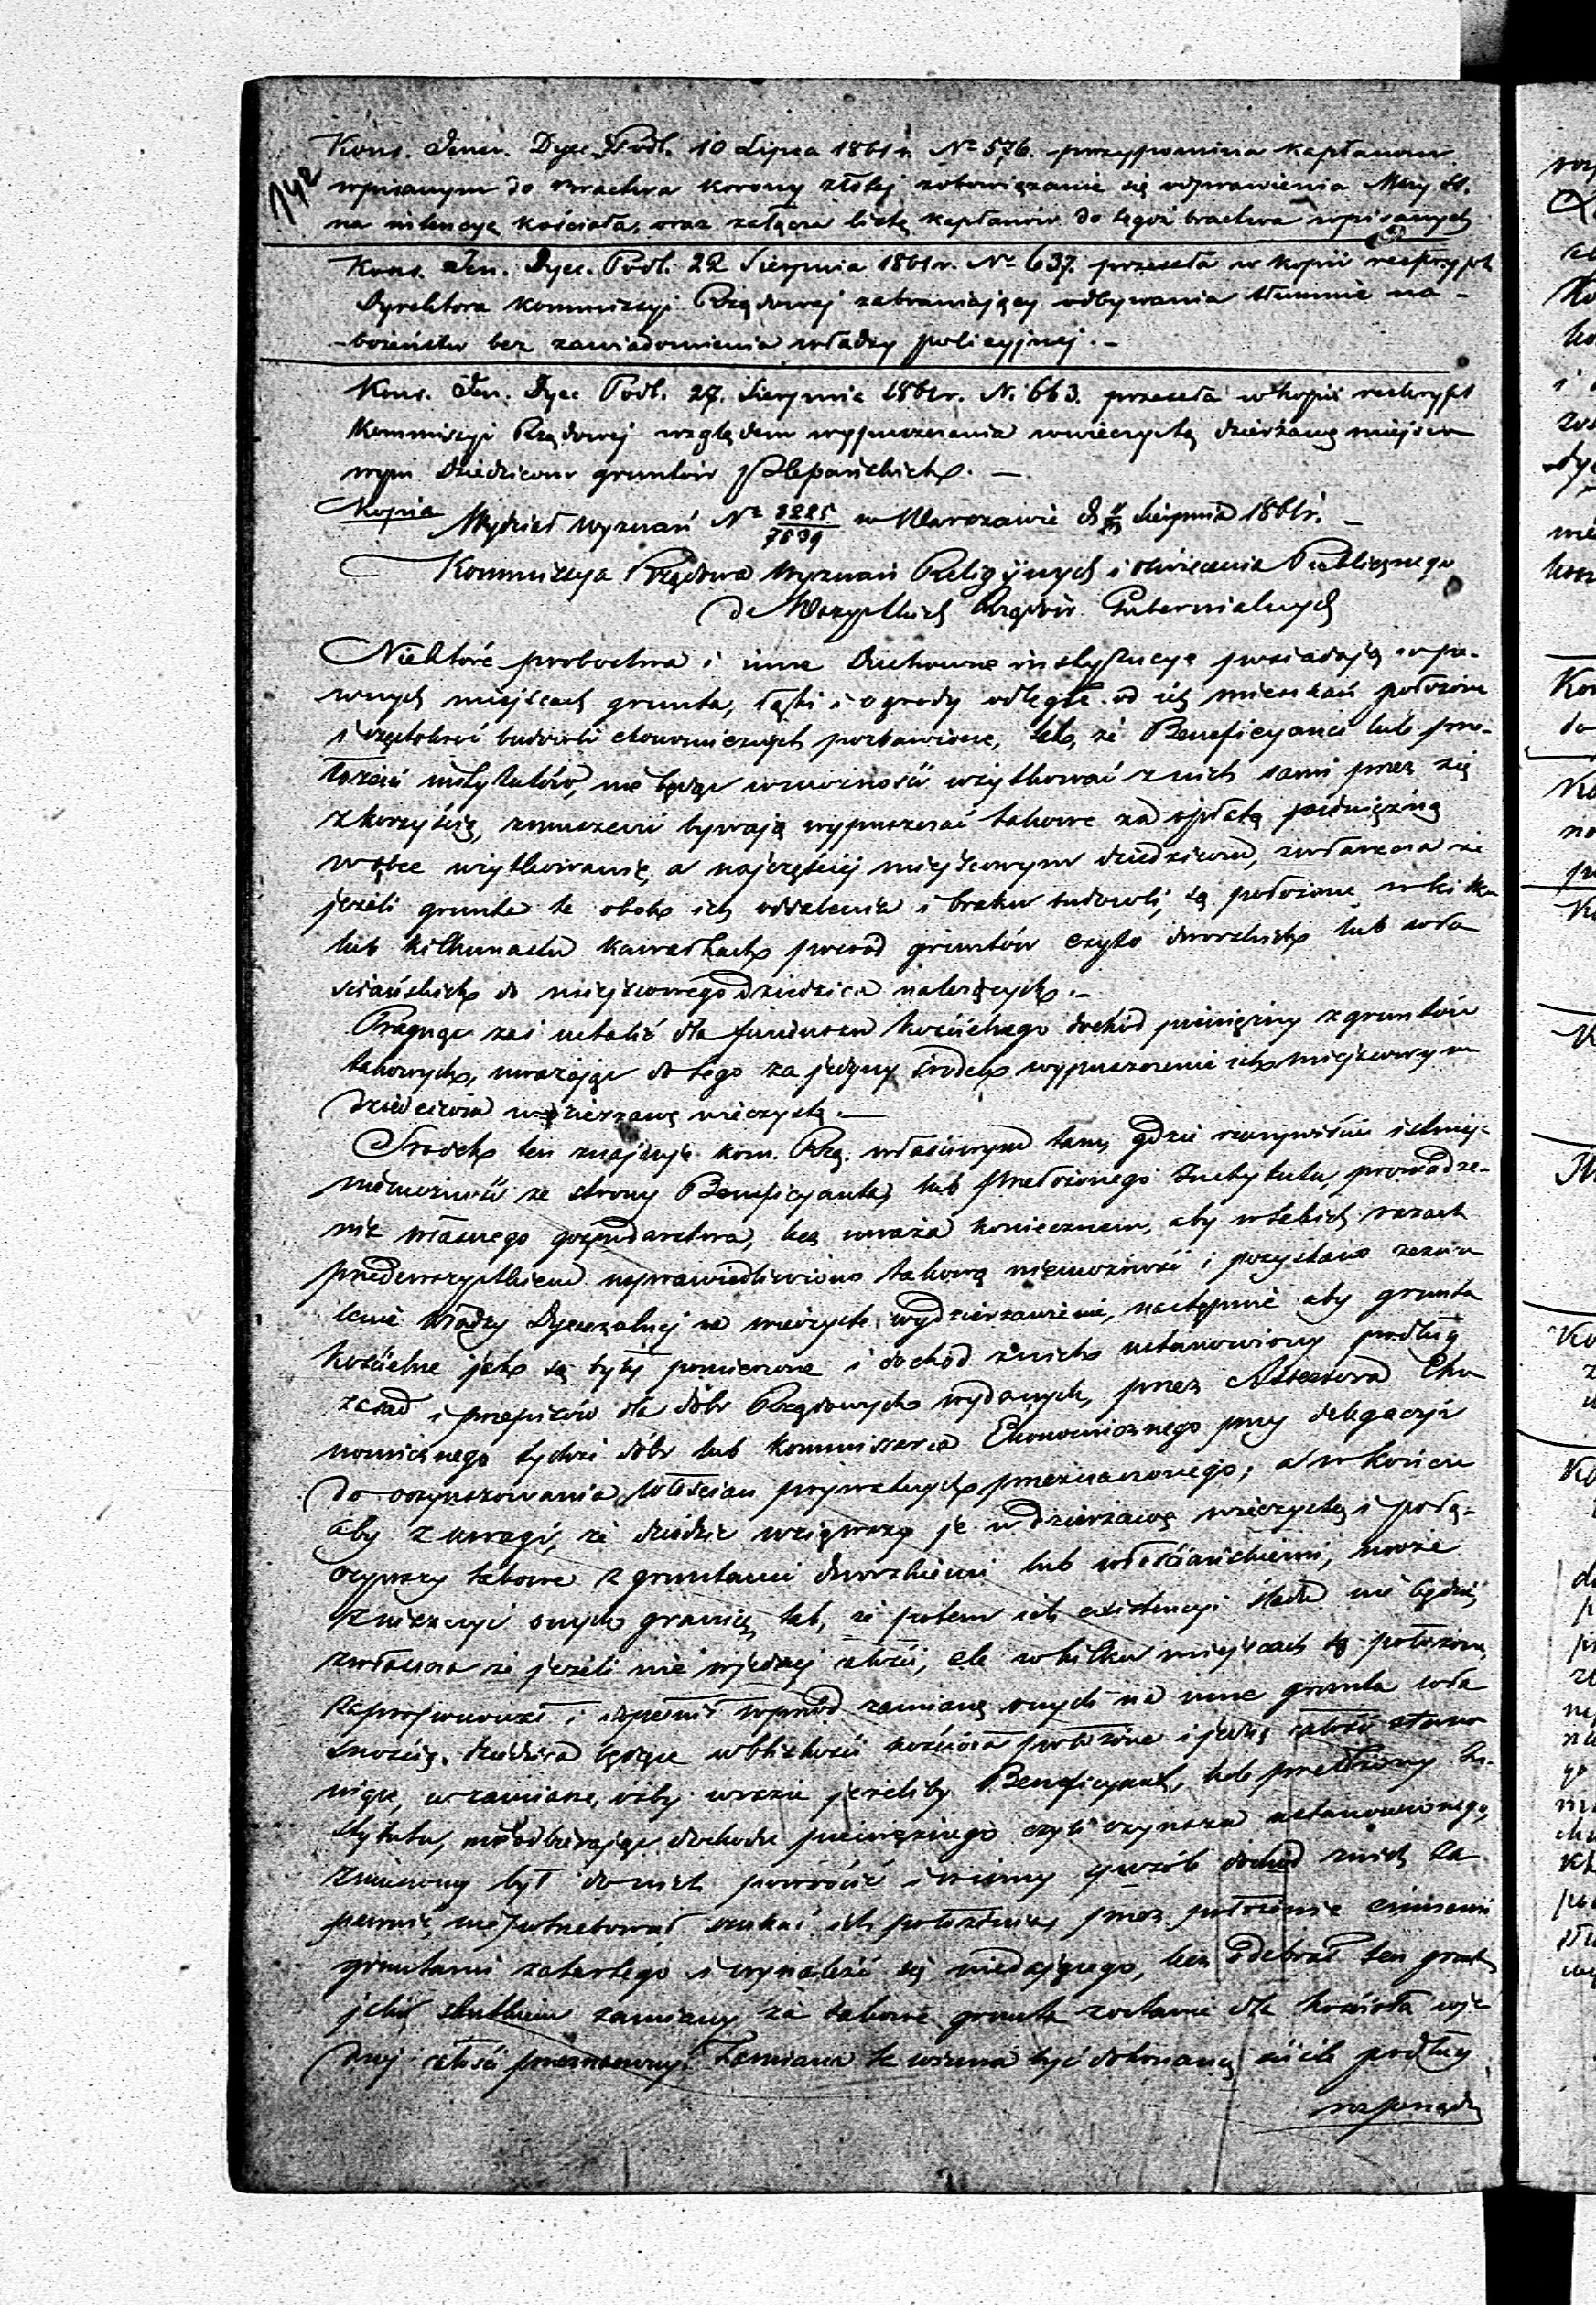 142
Kons. Jener. Dyec. Podl. 10 Lipca 1861 r. Nº 576. przypomina kapłanom
wpisanym do Bractwa korony złotej zobowiązanie się odprawienia Mszy St.
na intencyę kościoła, oraz załącza listę kapłanów do tegoż bractwa wpisanych
Kons. Jen. Dyec. Podl. 22 Sierpnia 1861 r. Nº 637. przeseła w kopii reskrypt
Dyrektora Kommissyi Rządowej zabraniający odbywania tłumnie na-
-bożeństw bez zawiadomienia władzy policyjnej. -
Kons. Jen. Dyec Podl. 27. Sierpnia 1861 r. N. 663. przeseła w kopii reskrypt
Kommissyi Rządowej względem wypuszczania w wieczystą dzierżawę miejsco
wym dziedzicom gruntów Plebańskich. —
Kopia Wydział wyznań Nº 8225/7539 w Warszawie d. Sierpnia 1861 r. -
Kommissya Rządowa Wyznań Religijnych i oświecenia Publicznego
do Wszystkich Rządów Gubernialnych
Niektóre probostwa i inne Duchowne instytucye posiadają w pe-
wnych miejscach grunta, łąki i ogrody odległe od ich mieszkań położone
i częstokroć budowli ekonomicznych pozbawione, tak, że Beneficyanci lub prze-
łożeni instytutów, nie będąc w możności użytkować z nich sami przez się
z korzyścią, zmuszeni bywają wypuszczać takowe za opłatą pieniężną
w obce użytkowanie, a najczęściej miejscowym dziedzicom, zwłaszcza że
jeżeli grunta te obok ich oddalenia i braku budowli, są położone w kilku
lub kilkunastu kawałkach pośród gruntów czyto dworskich lub wło
ściańskich do miejscowego dziedzica należących. -
Pragnąc zaś ustalić dla funduszu kościelnego dochód pieniężny z gruntów
takowych, uważając do tego za jedyny środek wypuszczenie ich miejscowym
dziedzicom w dzierżawę wieczystą. —
Środek ten znajduje Kom. Rzą. właściwym tam, gdzie rzeczywiście istnieje
niemożność ze strony Beneficyanta, lub przełożonego Instytutu, prowadze-
nie własnego gospodarstwa, lecz uważa koniecznem, aby w takich razach
przedewszystkiem usprawiedliwiono takową niemożność i pozyskano zezwo
lenie władzy Dyecezalnej na wieczyste wydzierżawienie, następnie aby grunta
kościelne jak są były pomierzone i dochód z nich ustanowiony podług
zasad i przepisów dla dóbr Rządowych wydanych, przez Assessora Eko
nomicznego tychże dóbr lub Kommissarza Ekonomicznego przy delegacyi
do oczynszowania włościan prywatnych przeznaczonego; a w końcu
aby z uwagi, że dziedzic wziąwszy je w dzierżawę wieczystą i połą-
czywszy takowe z gruntami dworskiemi lub włościańskiemi, może
zniszczyć onych granice, tak, że potem ich existencyi śladu nie będzie
zwłaszcza że jeżeli nie w jednej całości, ale w kilku miejscach są położone,
zaproponował i dopełnił wprzód zamianę onych na inne grunta wła
snością dziedzica będące w bliskości kościoła położone i jedną całość stano
wiące, w zamianie, iżby w razie jeżeliby Beneficyant, lub przełożony In-
stytutu, nie odbierając dochodu pieniężnego czyli czynszu ustanowionego,
zmuszony był do nich powrócić i w inny sposób dochód z nich za
pewnić, nie potrzebował szukać ich położenia, przez położenie z innemi
gruntami zatartego i wynaleźć się niedającego, lecz odebrał ten grunt
jaki skutkiem zamiany za takowe grunta zostanie dla kościoła w je
dnej całości przeznaczony. Zamiana ta winna być dokonaną ściśle podług
rozporządz